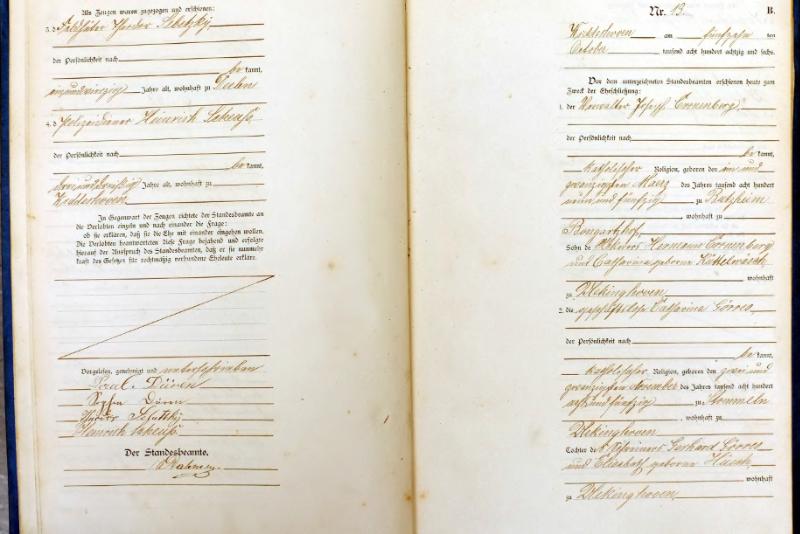 Als Zeugen waren zugezogen und erschienen:
3. d Feldhüter Theodor
der Persönlichkeit nach
be kannt,
einundvierzig Jahre alt, wohnhaft zu
4. d Polizeidiener Heinrich
der Persönlichkeit nach
be kannt,
dreiunddreißig Jahre alt, wohnhaft zu
In Gegenwart der Zeugen richtete der Standesbeamte an
die Verlobten einzeln und nach einander die Frage:
ob sie erklären, daß sie die Ehe mit einander eingehen wollen.
Die Verlobten beantworteten diese Frage bejahend und erfolgte
hierauf der Ausspruch des Standesbeamten, daß er sie nunmehr
kraft des Gesetzes für rechtmäßig verbundene Eheleute erkläre.
Vorgelesen, genehmigt und unterschrieben
Paul Düren
Düren
Heinrich
Der Standesbeamte.
Nr. 13.
B.
am fünfzehn ten
October tausend acht hundert achtzig und sechs.
Vor dem unterzeichneten Standesbeamten erschienen heute zum
Zweck der Eheschließung:
1. der Verwalter Josef Cronenberg
der Persönlichkeit nach
be kannt,
katholischer Religion, geboren den ein und
zwanzigsten Maerz des Jahres tausend acht hundert
neun und fünfzig zu
, wohnhaft zu
Bongartzhof,
Sohn de Hermann Cronenberg
und Catharina geborene
wohnhaft
zu Ükinghoven
2. die geschäftslose Catharina Görres
der Persönlichkeit nach
be kannt,
katholischer Religion, geboren den zwei und
zwanzigsten November des Jahres tausend acht hundert
acht und fünfzig zu Hommeln
, wohnhaft zu
Ükinghoven
Tochter de s Schreiners Gerhard Görres
und Elisabeth geborene
wohnhaft
zu Ükinghoven